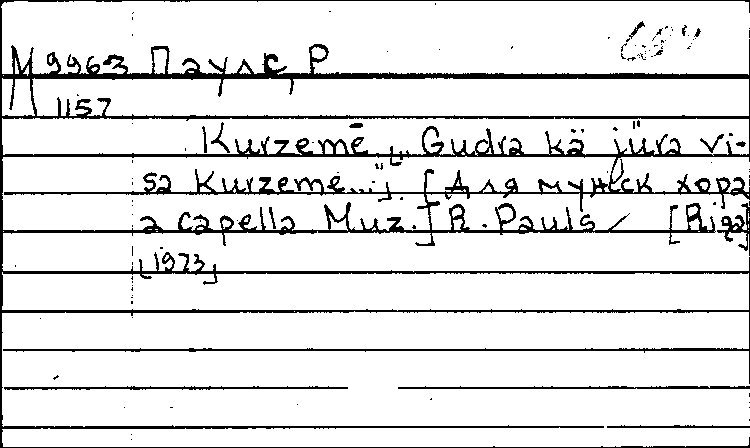 М 9963 Паулс, Р
1157
Kurzemē „Gudra kä jüra vi-
sa Kurzeme...". [Для мужск хора
a capella. Muz.] R. Pauls [Riga]
[1973]